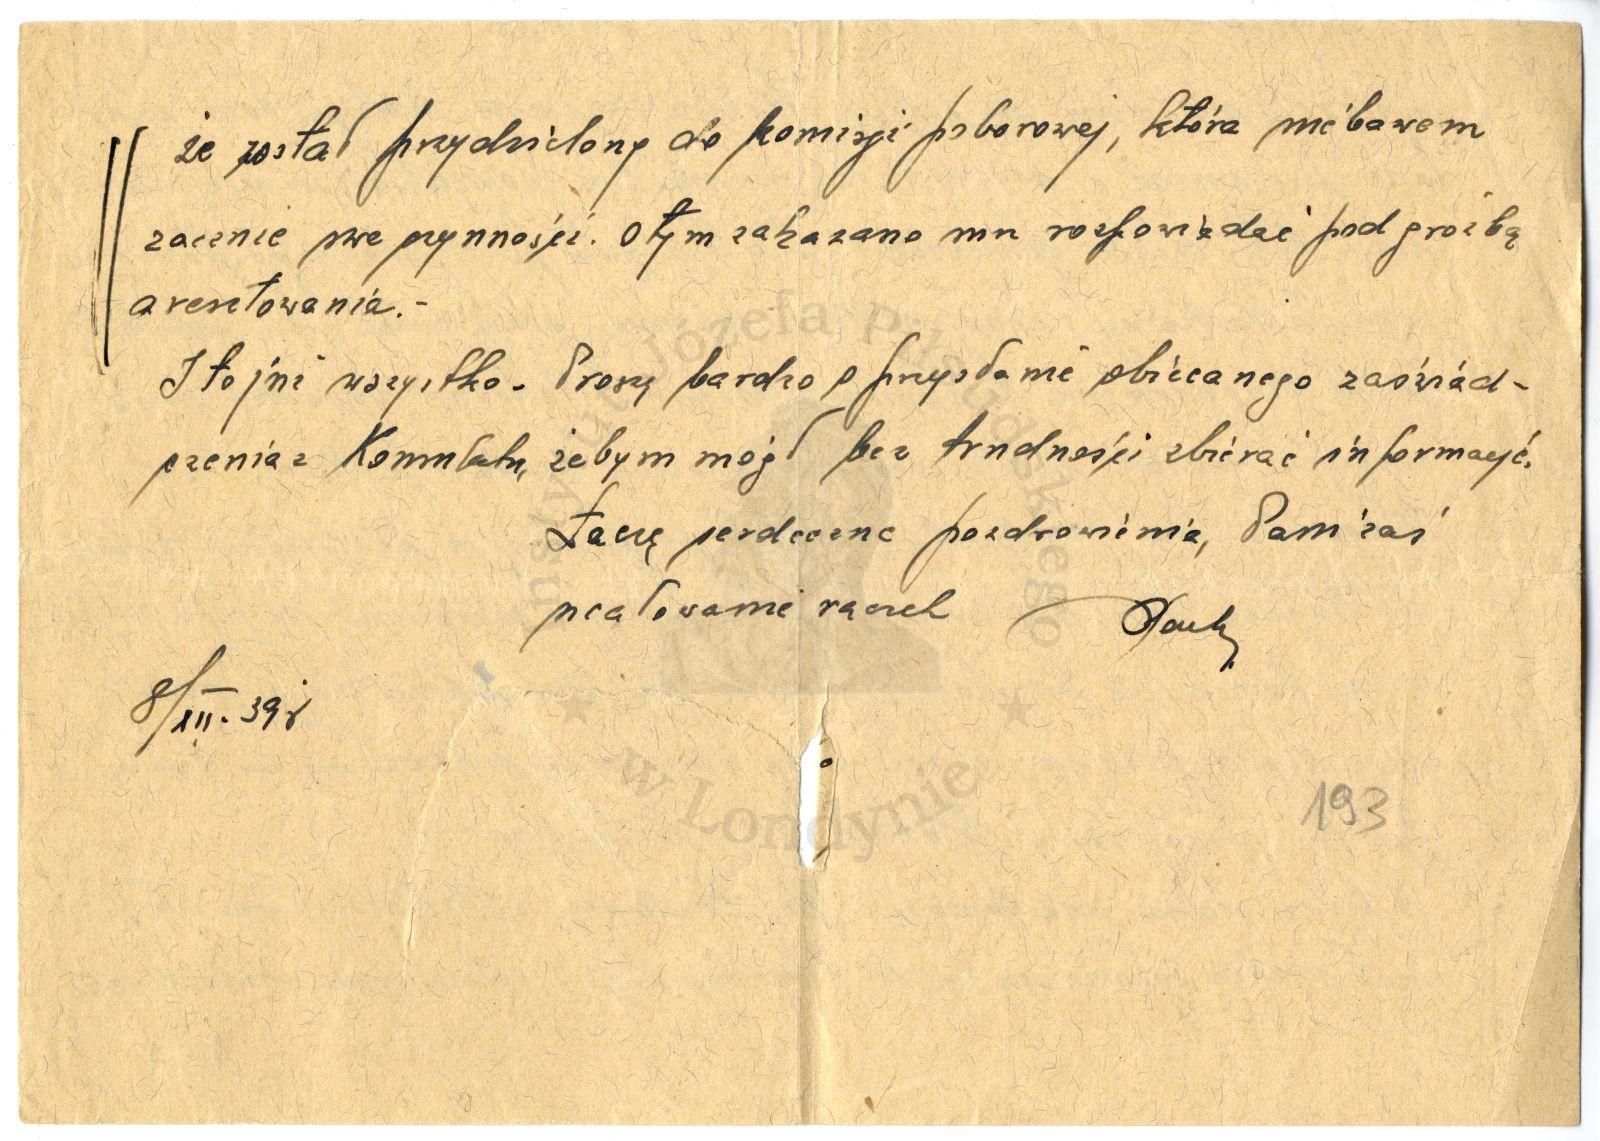 że został przydzielony do komisji poborowej, która niebawem
zacznie swe czynności. O tym zakazano mu rozpowiadać pod groźbą
aresztowania.-
I to już wszystko. Proszę bardzo o przysłanie obiecanego zaświad-
czenia z Konsulatu, żebym mógł bez trudności zbierać informacje.
Łączę serdeczne pozdrowienia, Pani zaś
ucałowanie rączek
8/XII. 39 r
193
Instytut Józefa Piłsudskiego
w Londynie